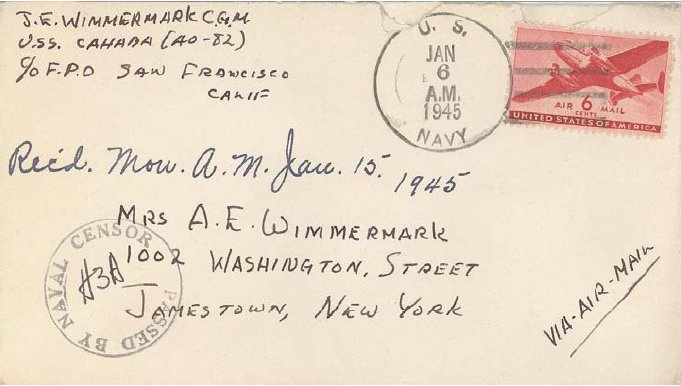 J.E. WIMMERMARK C.G.M
U.S.S. CAHABA (AO-82)
C/O F.P.O SAN FRANCISCO
CALIF
U. S.
JAN
6
A.M.
1945
NAVY
AIR 6 MAIL
CENTS
UNITED STATES OF AMERICA
Rec'd. Mon. A.M. Jan. 15. 1945
MRS A.E. WIMMERMARK
1002 WASHINGTON, STREET
JAMESTOWN, NEW YORK
PASSED BY NAVAL CENSOR
VIA-AIR-MAIL